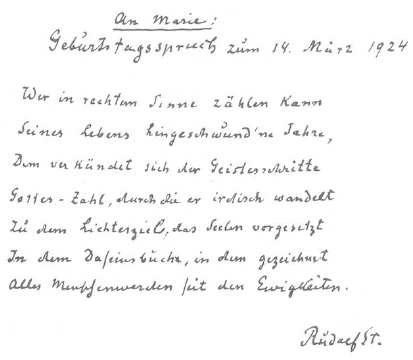 An Marie:
Geburtstagsspruch zum 14. März 1924
Wer in rechtem Sinne zählen kann
Seines Lebens hingeschwund'ne Jahre,
Dem verkündet sich der Geistesschritte
Gottes-Zahl, durch die er irdisch wandelt
Zu dem Lichterziele, das Seelen vorgesetzt
In dem Daseinsbuche, in dem gezeichnet
Alles Menschenwerden seit den Ewigkeiten.
Rudolf St.